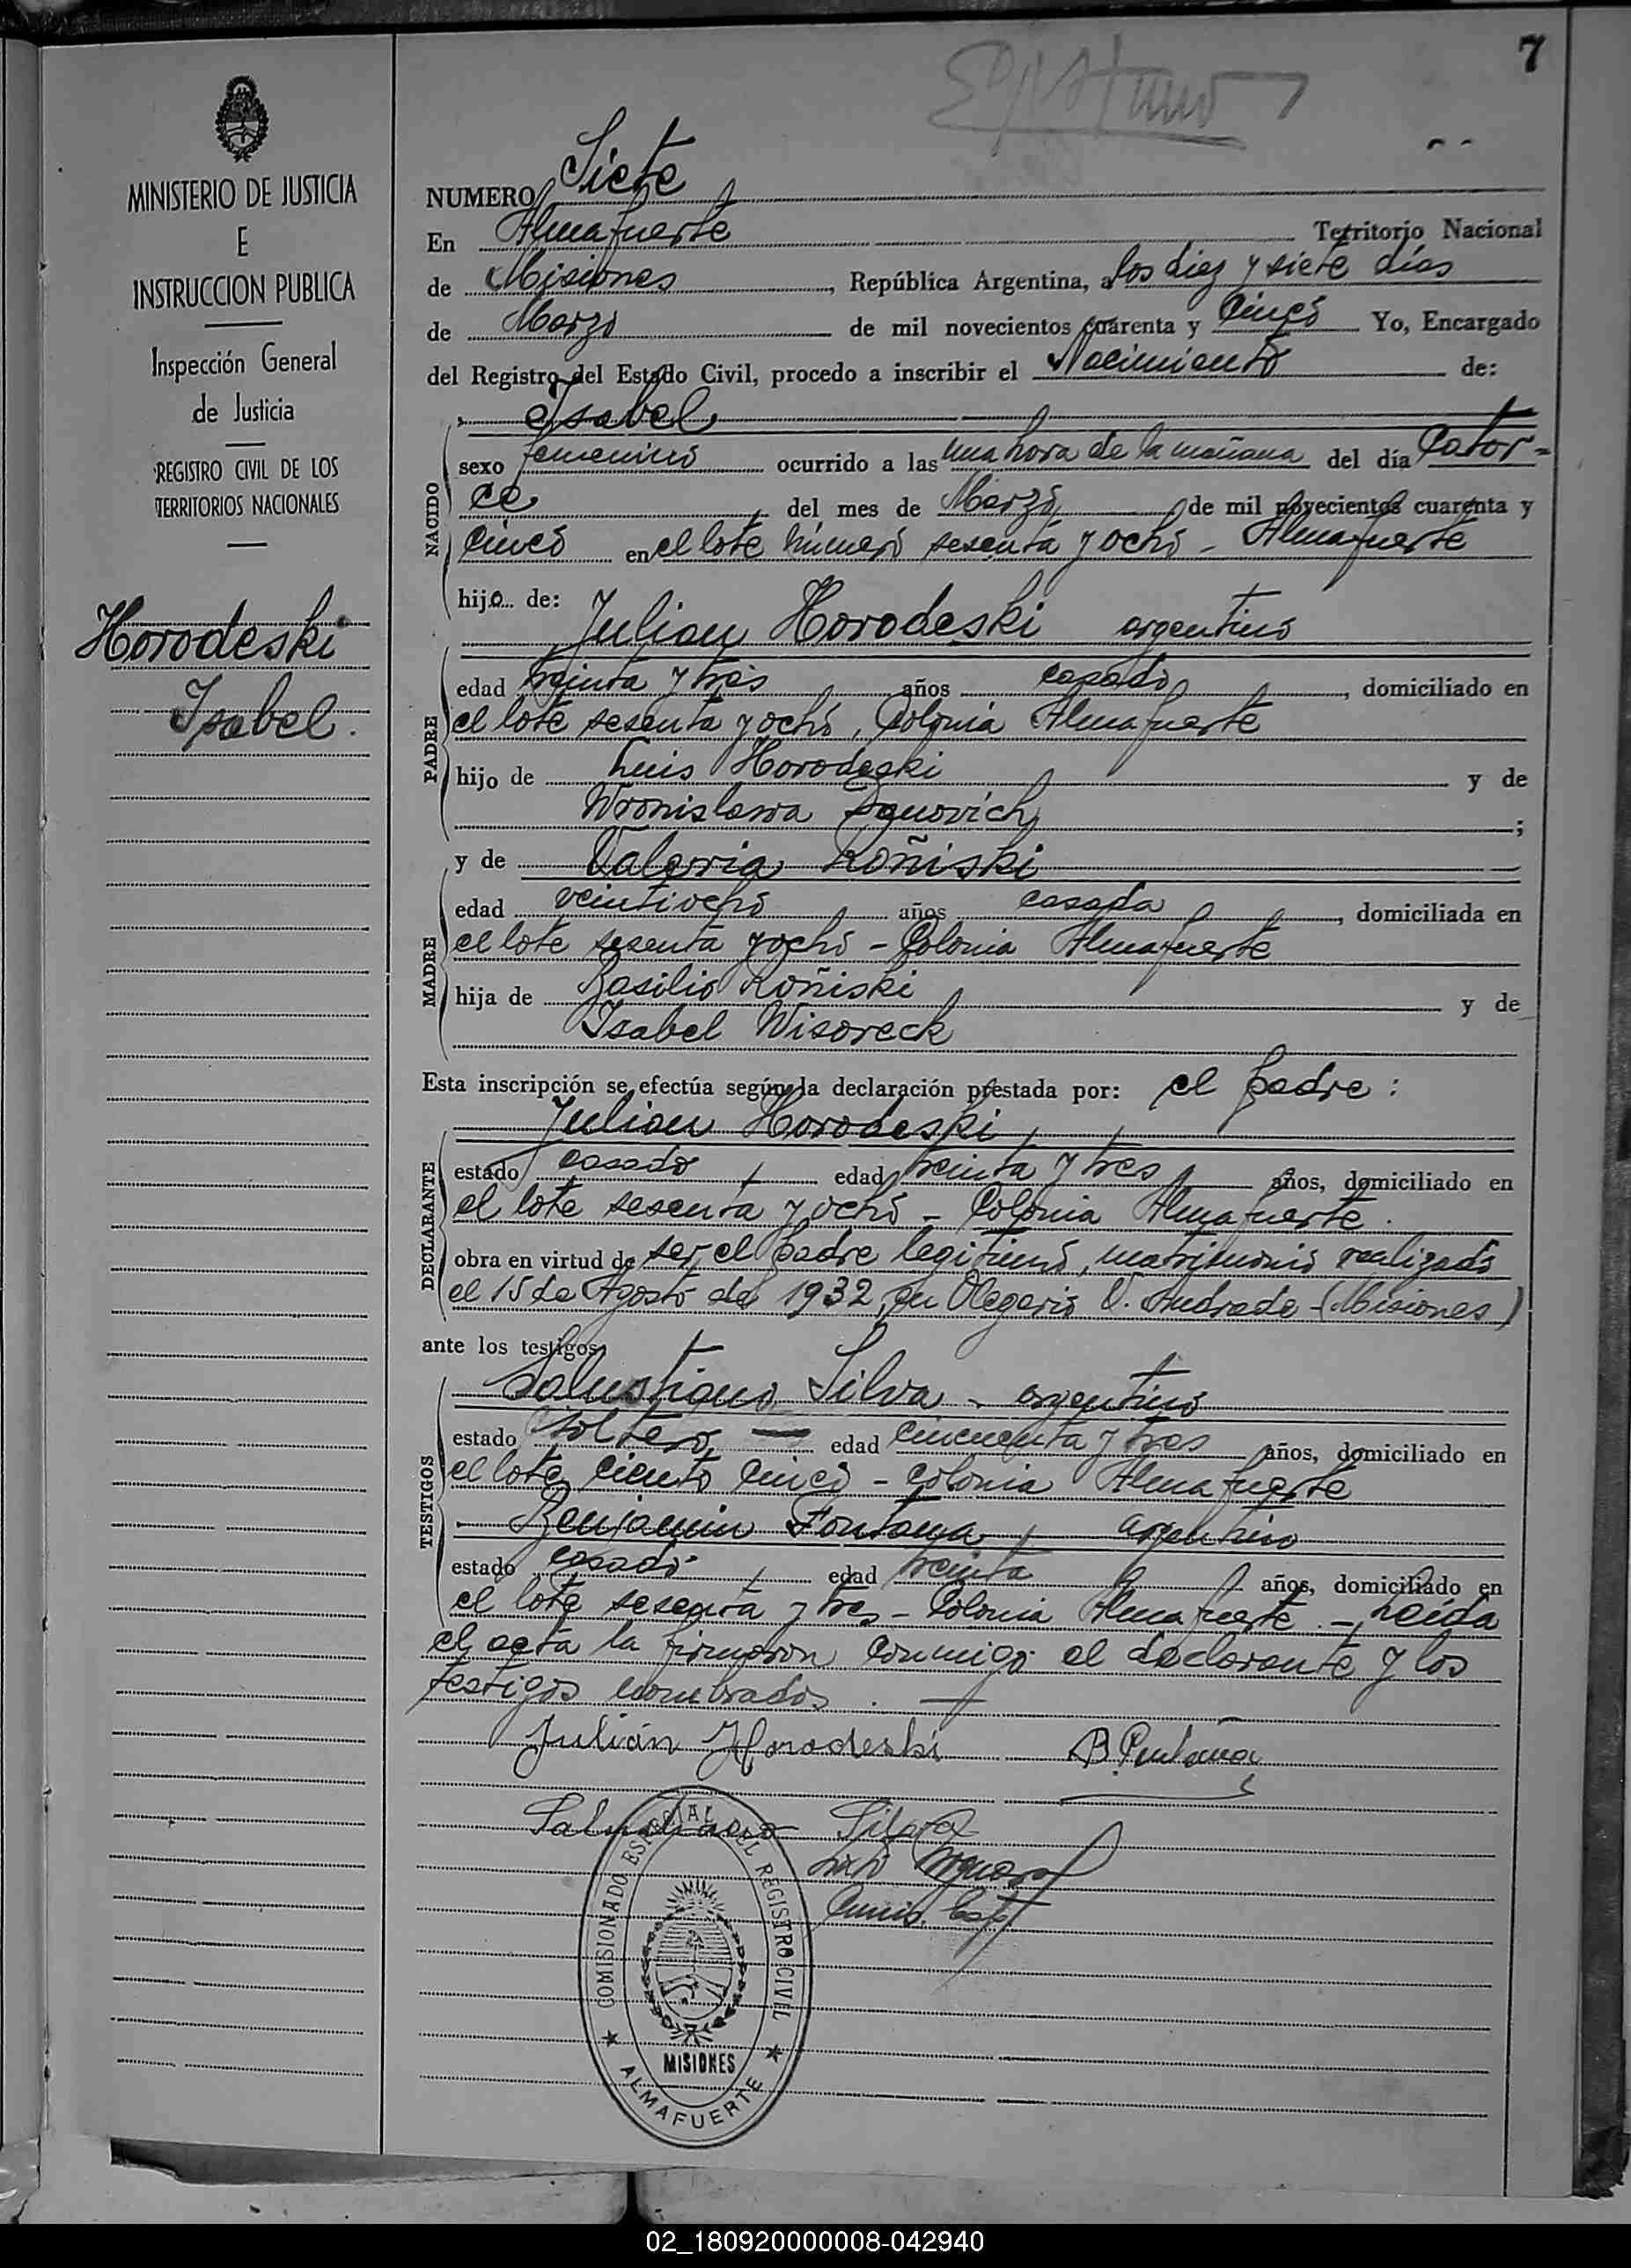 7
MINISTERIO DE JUSTICIA
E
INSTRUCCION PUBLICA
Inspección General
de Justicia
REGISTRO CIVIL DE LOS
TERRITORIOS NACIONALES
Horodeski
Isabel.
NUMERO Siete
En Almafuerte Territorio Nacional
de Misiones, República Argentina, a los diez y siete días
de Marzo de mil novecientos cuarenta y cinco Yo, Encargado
del Registro del Estado Civil, procedo a inscribir el Nacimiento de:
Isabel
NACIDO
sexo femenino ocurrido a las una hora de la mañana del día Cator-
ce del mes de Marzo de mil novecientos cuarenta y
cinco en el lote número sesenta y ocho - Almafuerte
hija de:
Julian Horodeski argentino
PADRE
edad treinta y tres años casado, domiciliado en
el lote sesenta y ocho, Colonia Almafuerte
hijo de Luis Horodeski y de
Wronislawa ;
y de Valeria Roñiski
MADRE
edad veintiocho años casada, domiciliada en
el lote sesenta y ocho - Colonia Almafuerte
hija de Basilio Roñiski y de
Isabel Wisoreck
Esta inscripción se efectúa según la declaración prestada por: el padre:
Julian Horodeski
DECLARANTE
estado casado edad treinta y tres años, domiciliado en
el lote sesenta y ocho - Colonia Almafuerte.
obra en virtud de ser el padre legitimo, matrimonio realizado
el 15 de Agosto de 1932, en Olegario V. Andrade - (Misiones)
ante los testigos
TESTIGOS
Salustiano Silva - argentino
estado soltero, edad cincuenta y tres años, domiciliado en
el lote ciento cinco - colonia Almafuerte
Benjamin Fontana argentino
estado casado edad treinta años, domiciliado en
el lote sesenta y tres - Colonia Almafuerte. - Leída
el acta la firmaron conmigo el declarante y los
testigos nombrados. -
Julián Horodeski B. Fontana
Salustiano Silva
COMISIONADO ESPECIAL DEL REGISTRO CIVIL
MISIONES
ALMAFUERTE
02_180920000008-042940